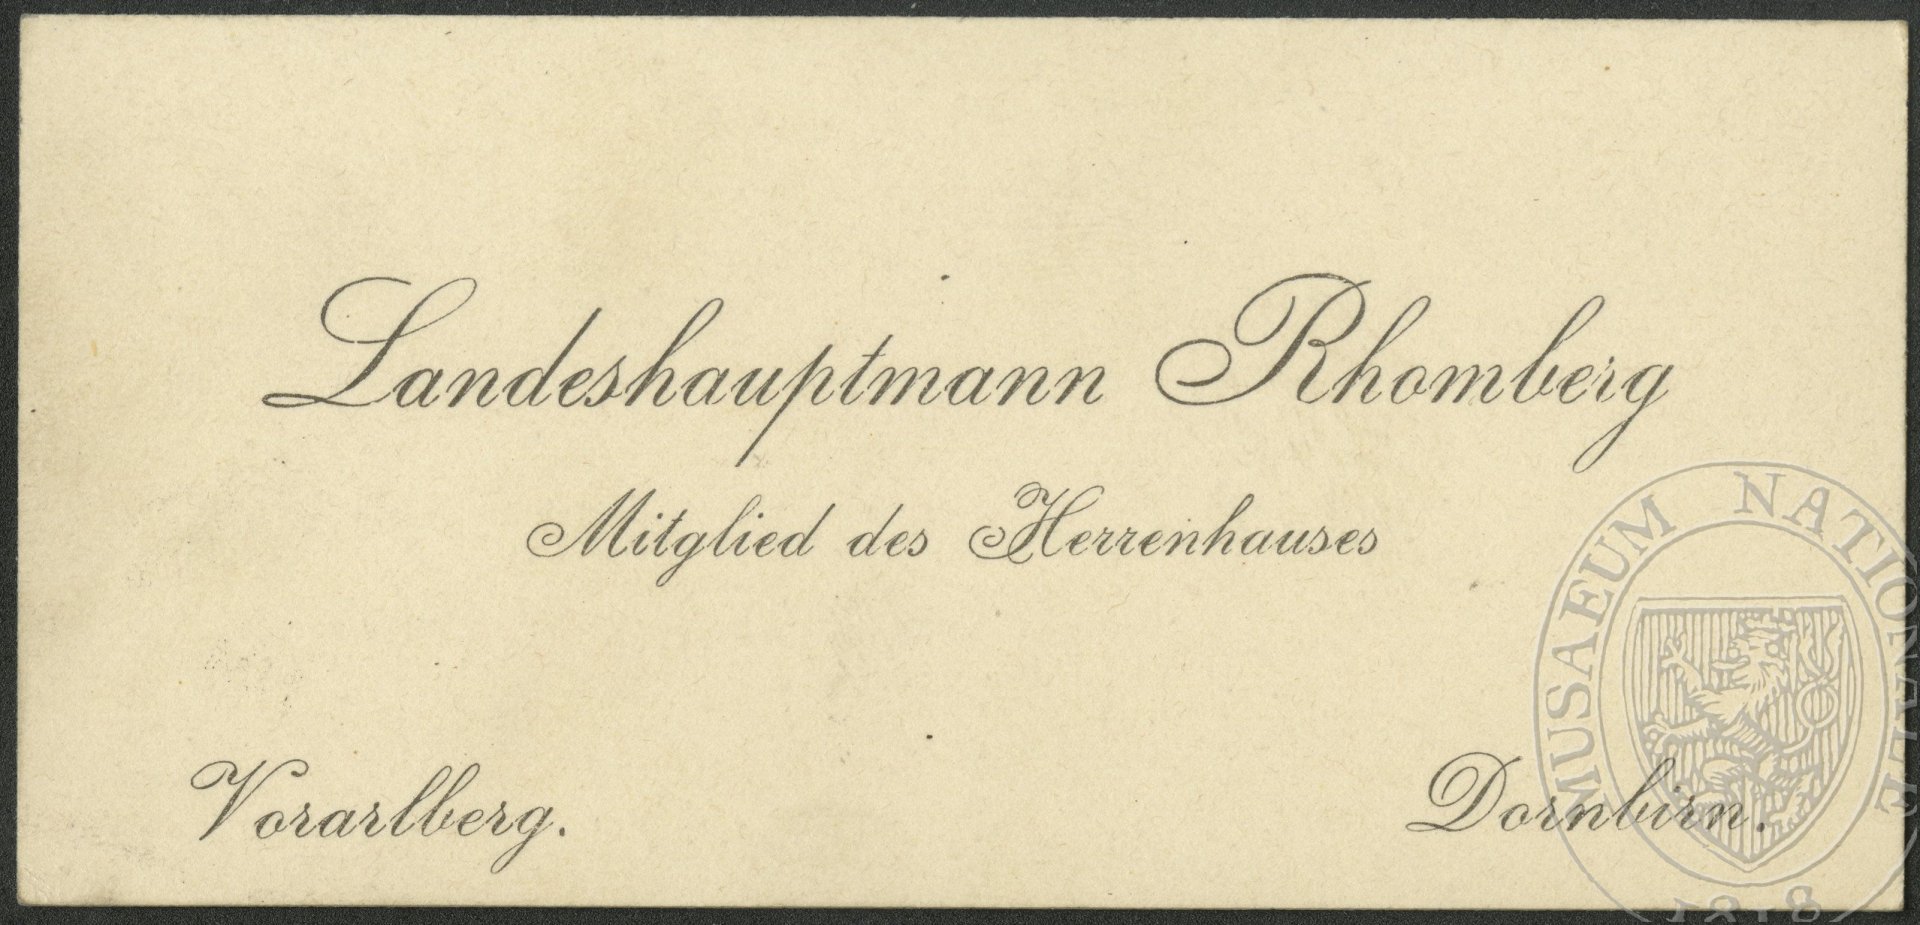 Landeshauptmann Rhomberg
Mitglied des Herrenhauses
Vorarlberg.
Dornbirn.
MUSAEUM NATIONALE
1818